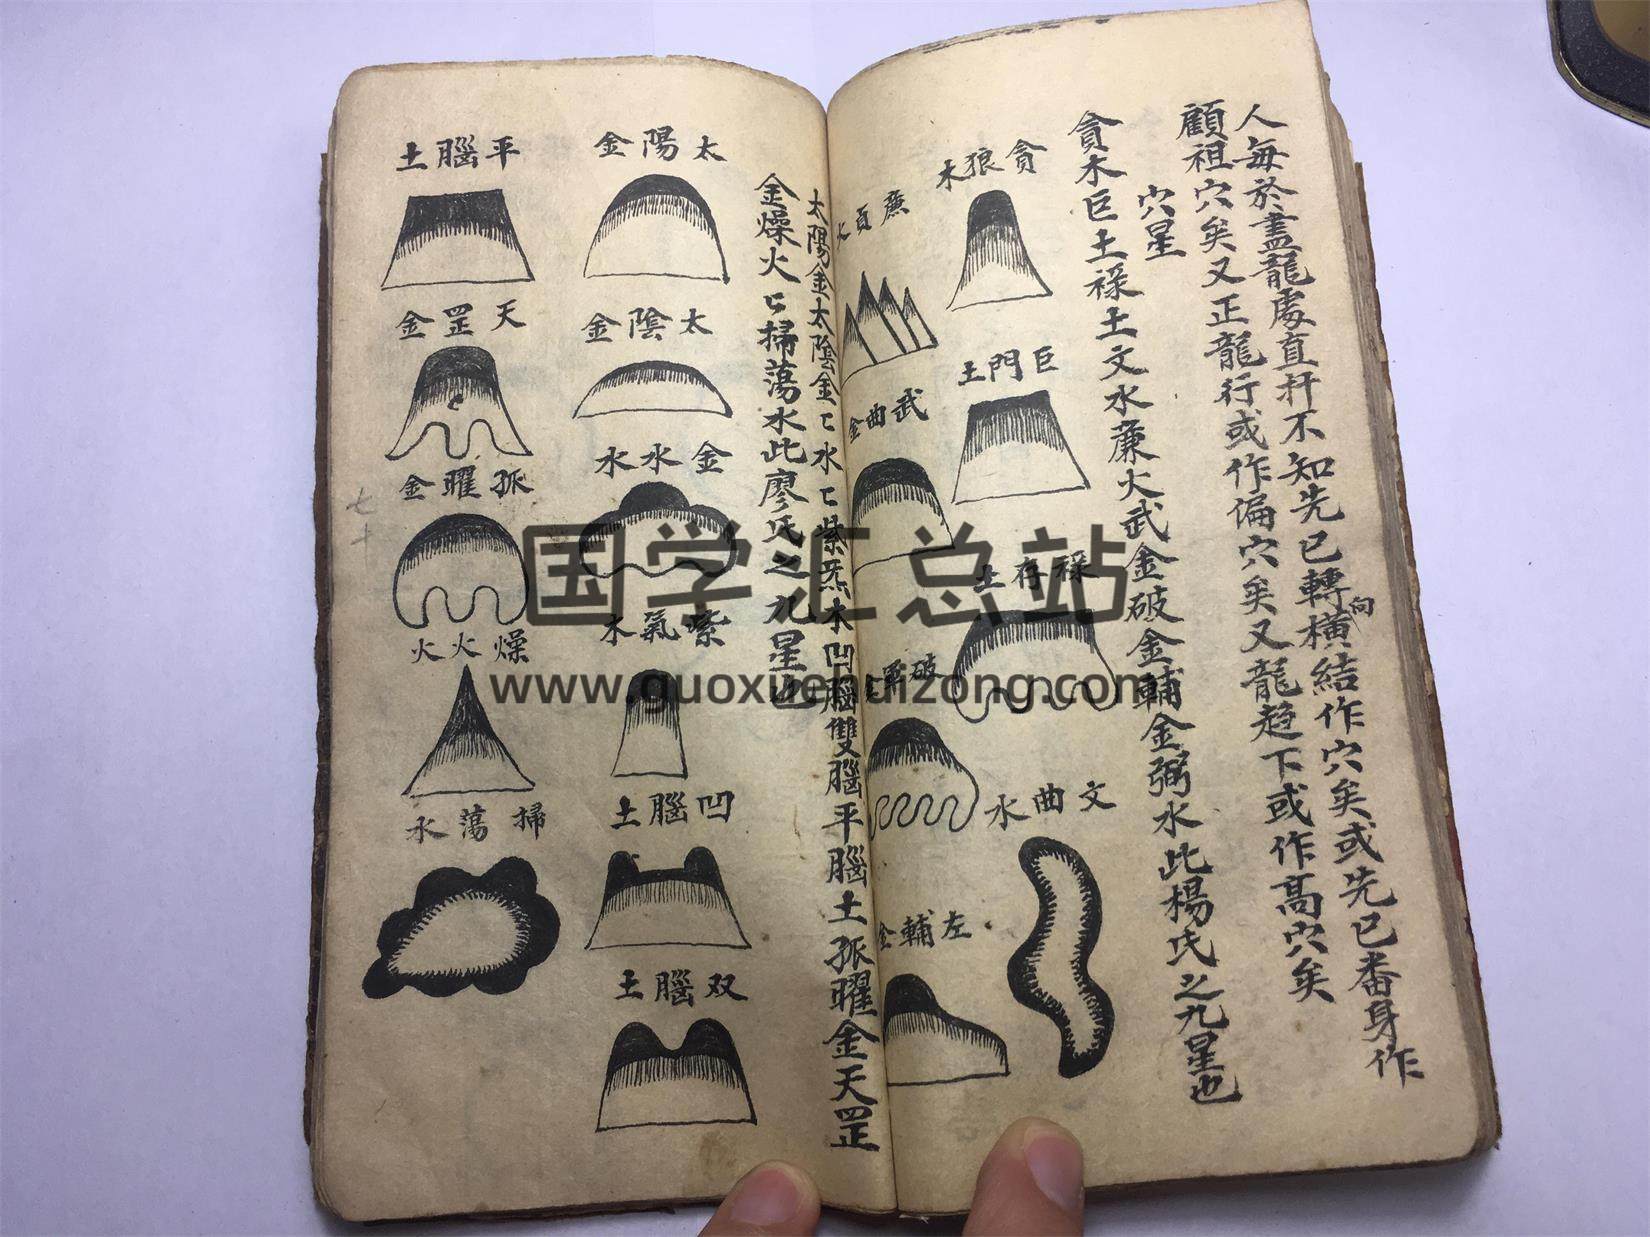 人每於盡龍處直扦不知先已轉向橫結作穴矣或先已番身作
顧祖穴矣又正龍行或作偏穴矣又龍趋下或作高穴矣
穴星
貪木巨土祿土文水廉火武金破金輔金弼水此楊氏之九星也
貪狼木
巨門土
祿存土
文曲水
廉貞火
武曲金
破軍金
左輔金
太陽金太陰金㇄水㇄紫炁木凹腦雙腦平腦土孤曜金天罡
金燥火㇄掃蕩水此廖氏之九星也
太陽金
太陰金
金水水
紫氣木
凹腦土
双腦土
平腦土
天罡金
孤曜金
燥火火
掃蕩水
七十
国学汇总站
www.guoxuehuizong.com